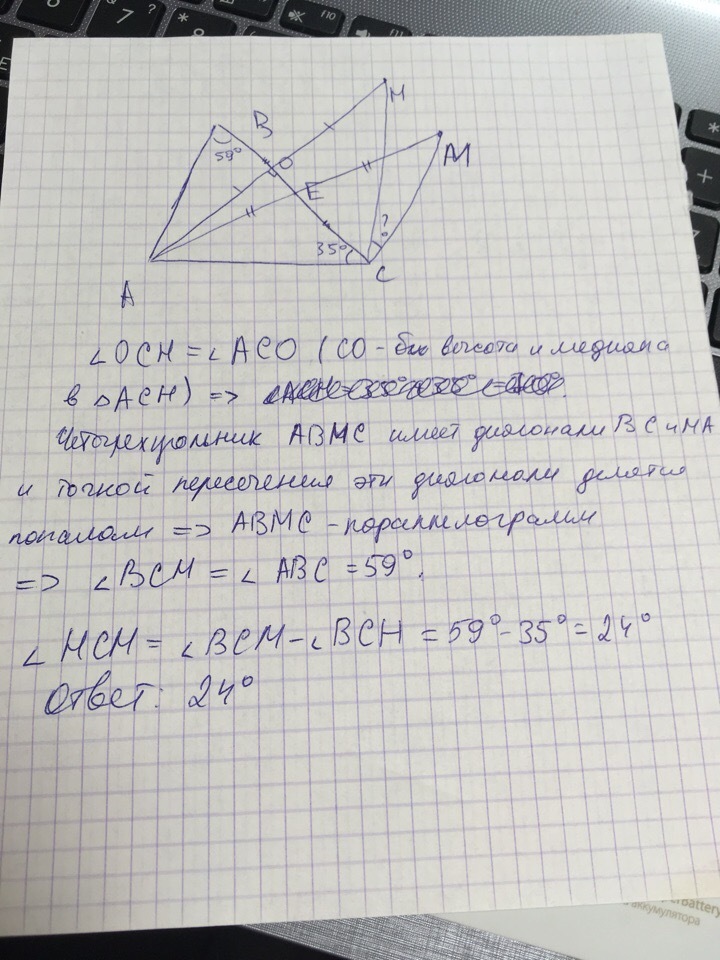 7
*
8
9
F10
F11
E
*
+
B
H
M
59°
O
E
35°
?
°
A
C
∠OCH = ∠ACO (CO - высота и медиана
в △ACH) =>
Четырехугольник ABMC имеет диагонали BC и MA
и точкой пересечения эти диагонали делятся
пополам => ABMC - параллелограмм
=> ∠BCM = ∠ABC = 59°.
∠HCM = ∠BCM - ∠BCH = 59° - 35° = 24°
Ответ: 24°
Battery
аккумулятора